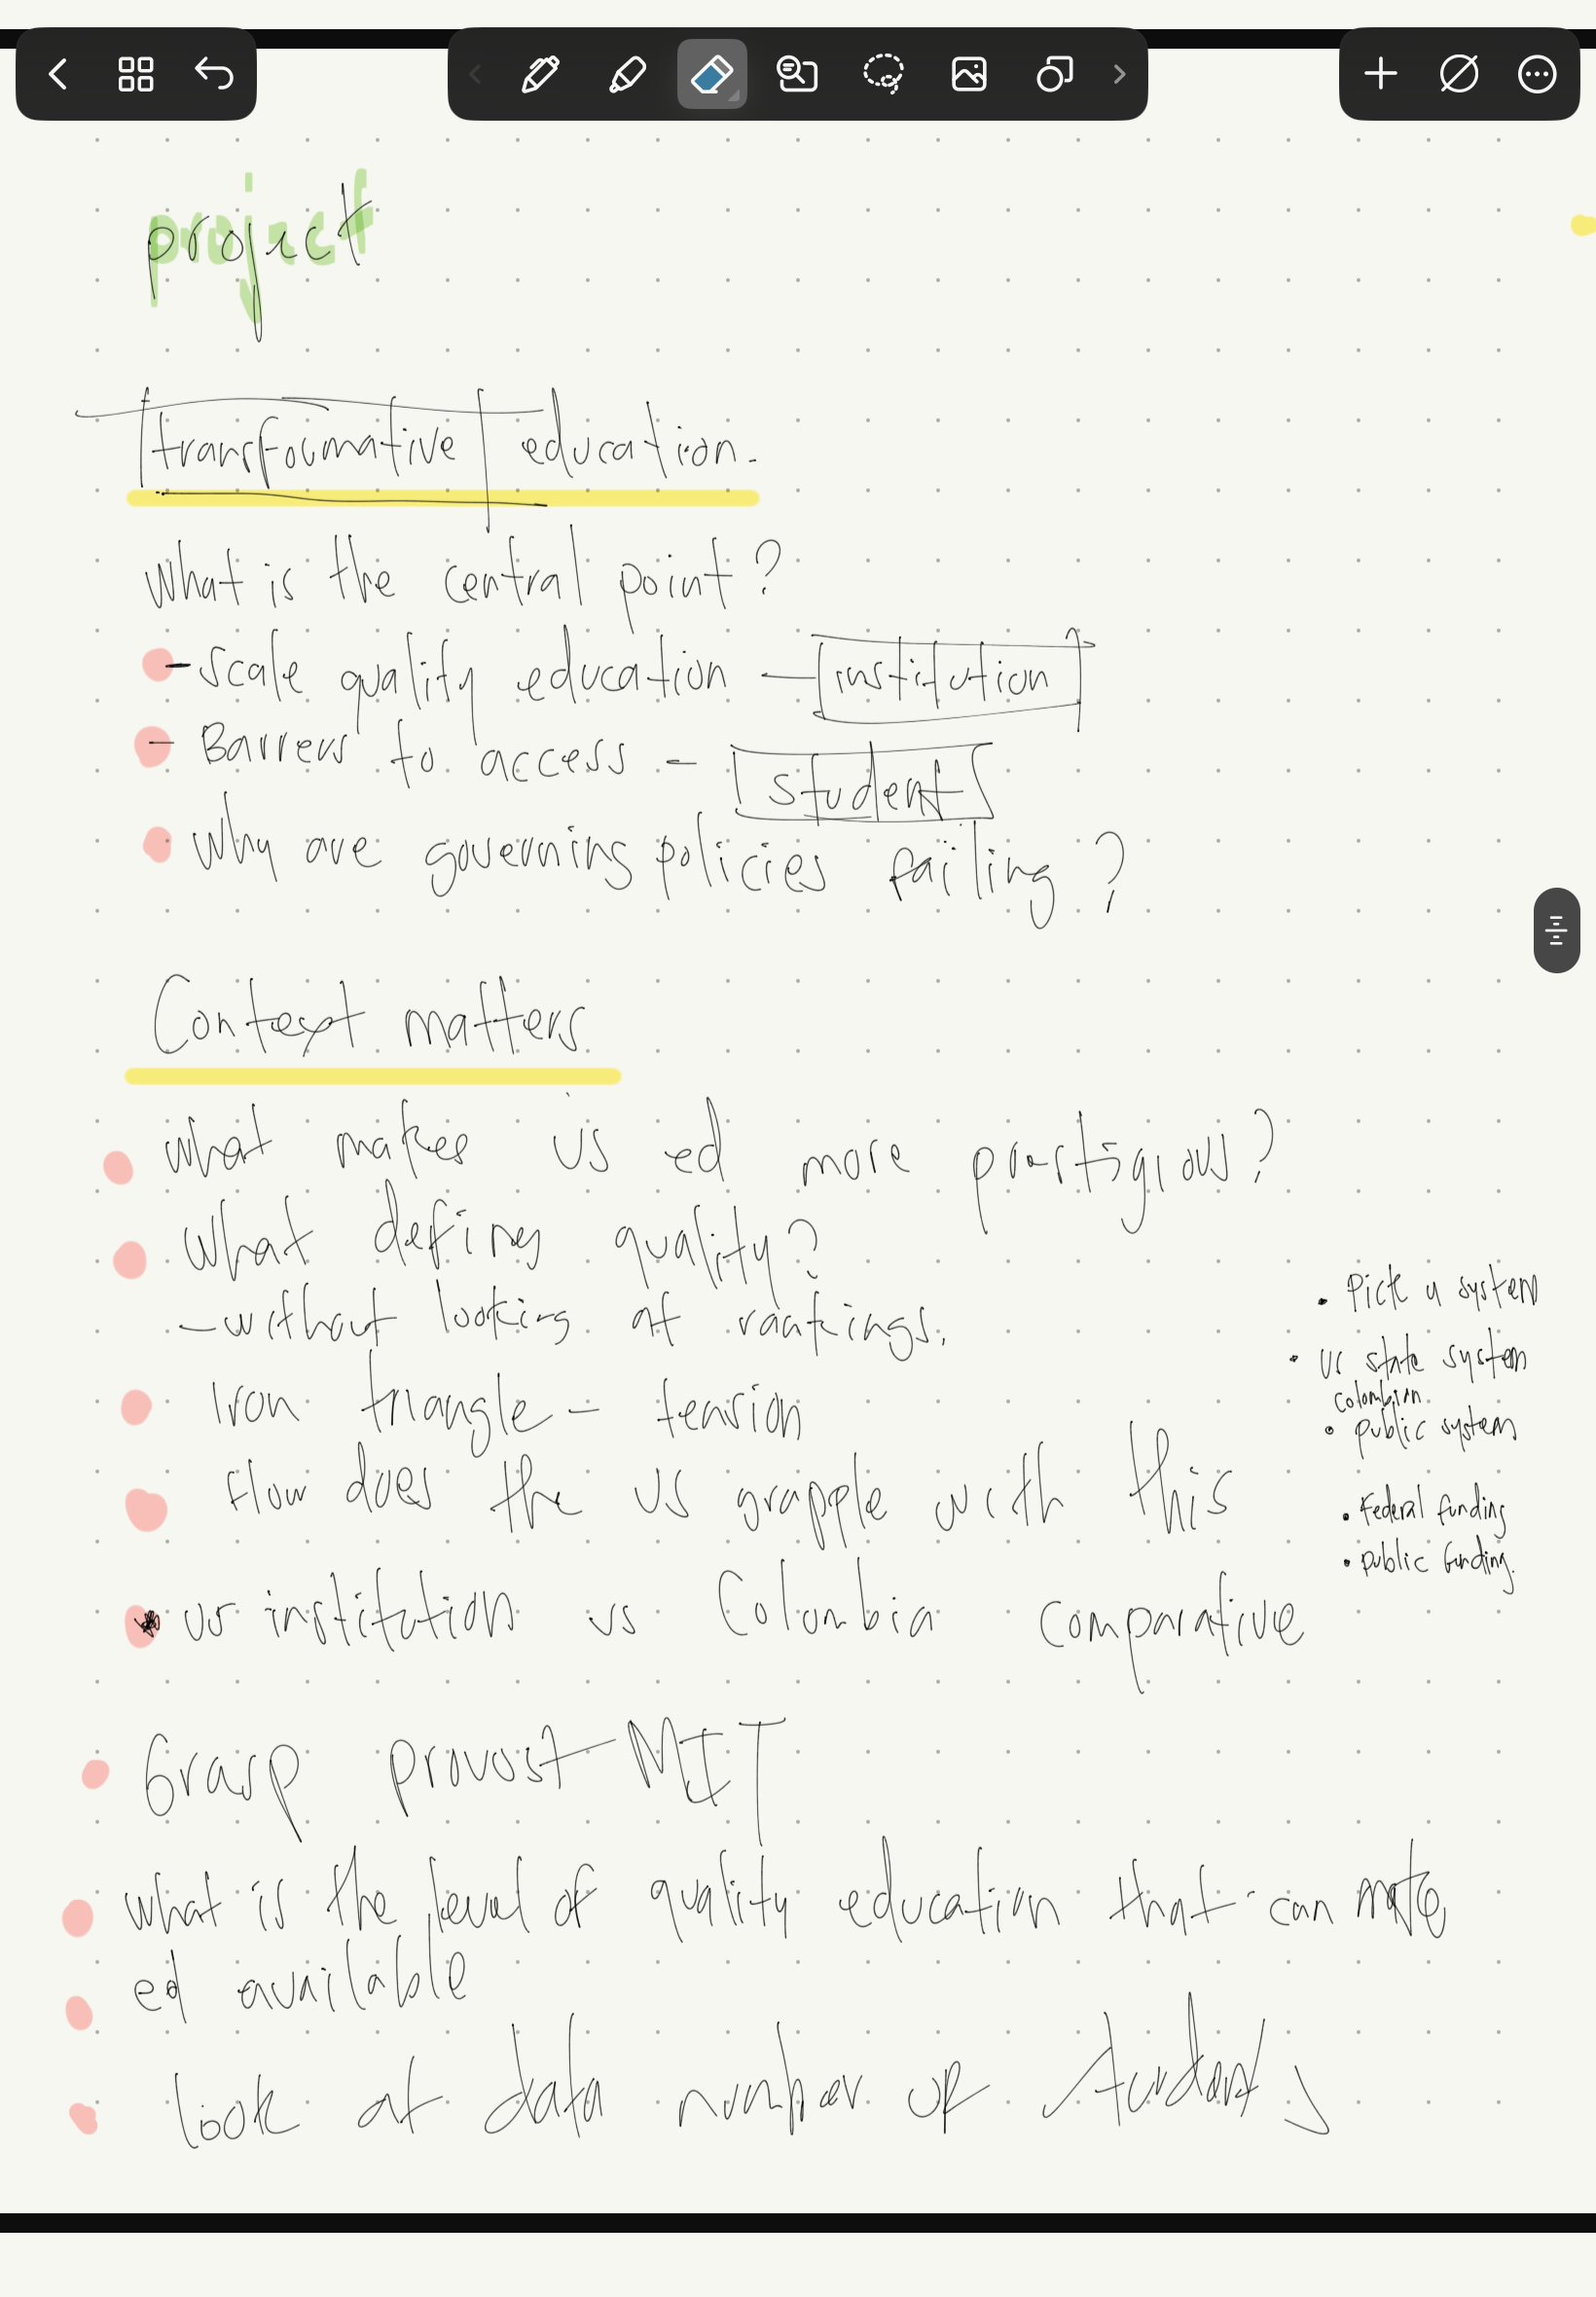 project
transformative education.
what is the central point?
- scale quality education - institution
- Barrers to access - students
why are governing policies failing?
Context matters
what makes US ed more prestigious?
what defines quality?
- without looking at rankings.
Iron triangle - tension
How does the US grapple with this
US institution vs Colombia comparative
• Pick a system
• US state system
colombian
• public system
• Federal funding
• public funding.
Grasp provost MIT
what is the level of quality education that can make
ed available
look at data number of students